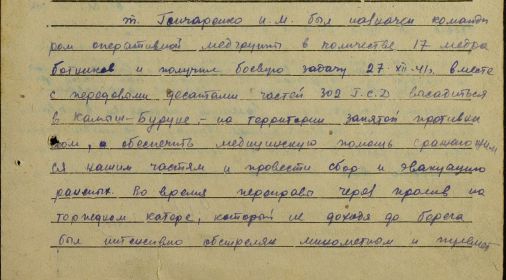 т. Гончаренко И.М. был назначен команди
ром оперативной медгруппы в количестве 17 медра
ботников и получил боевую задачу 27-XII-41г. вместе
с передовыми десантами частей 302 Г.С.Д высадиться
в Камыш-Буруне, - на территории занятой противни
ком, и обеспечить медицинскую помощь сражающим
ся нашим частям и провести сбор и эвакуацию
раненых. Во время переправы через пролив на
торпедном катере, который не доходя до берега
был интенсивно обстрелян минометным и пулемет